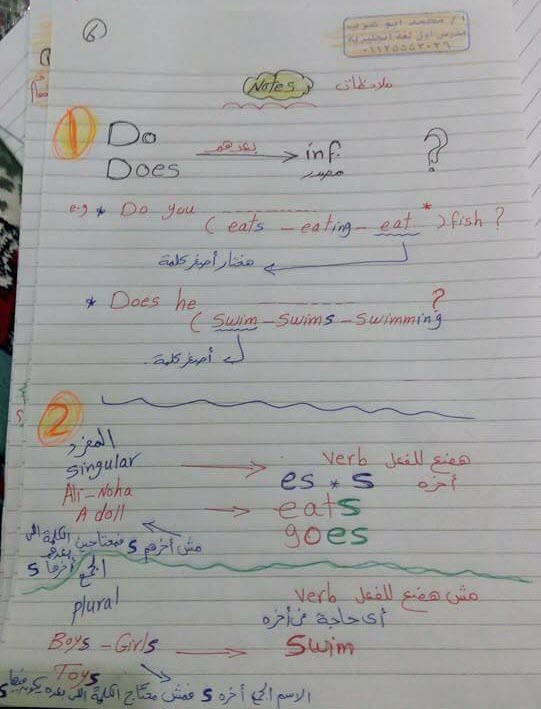 6
أ / محمد ابو ضيف
مدرس اول لغة انجليزية
Notes ملاحظات
1 Do
Does بعدهم inf. مصدر ?
e.g * Do you ------------
( eats - eating - eat * ) fish ?
هختار أصغر كلمة
* Does he ------------ ?
( Swim - Swims - Swimming
أصغر كلمة.
2
المفرد
Singular هنضع للفعل Verb أخره
es * s
Ali - Noha
A doll eats
goes
مش أخرهم s فمحتاجين الكلمة اللى بعدهم أخرها s
الجمع
plural مش هنضع للفعل Verb
أى حاجة فى أخره
Boys - Girls Swim
Toys
الاسم الجمع أخره s فمش محتاج الكلمة اللى بعده يكون فيها s